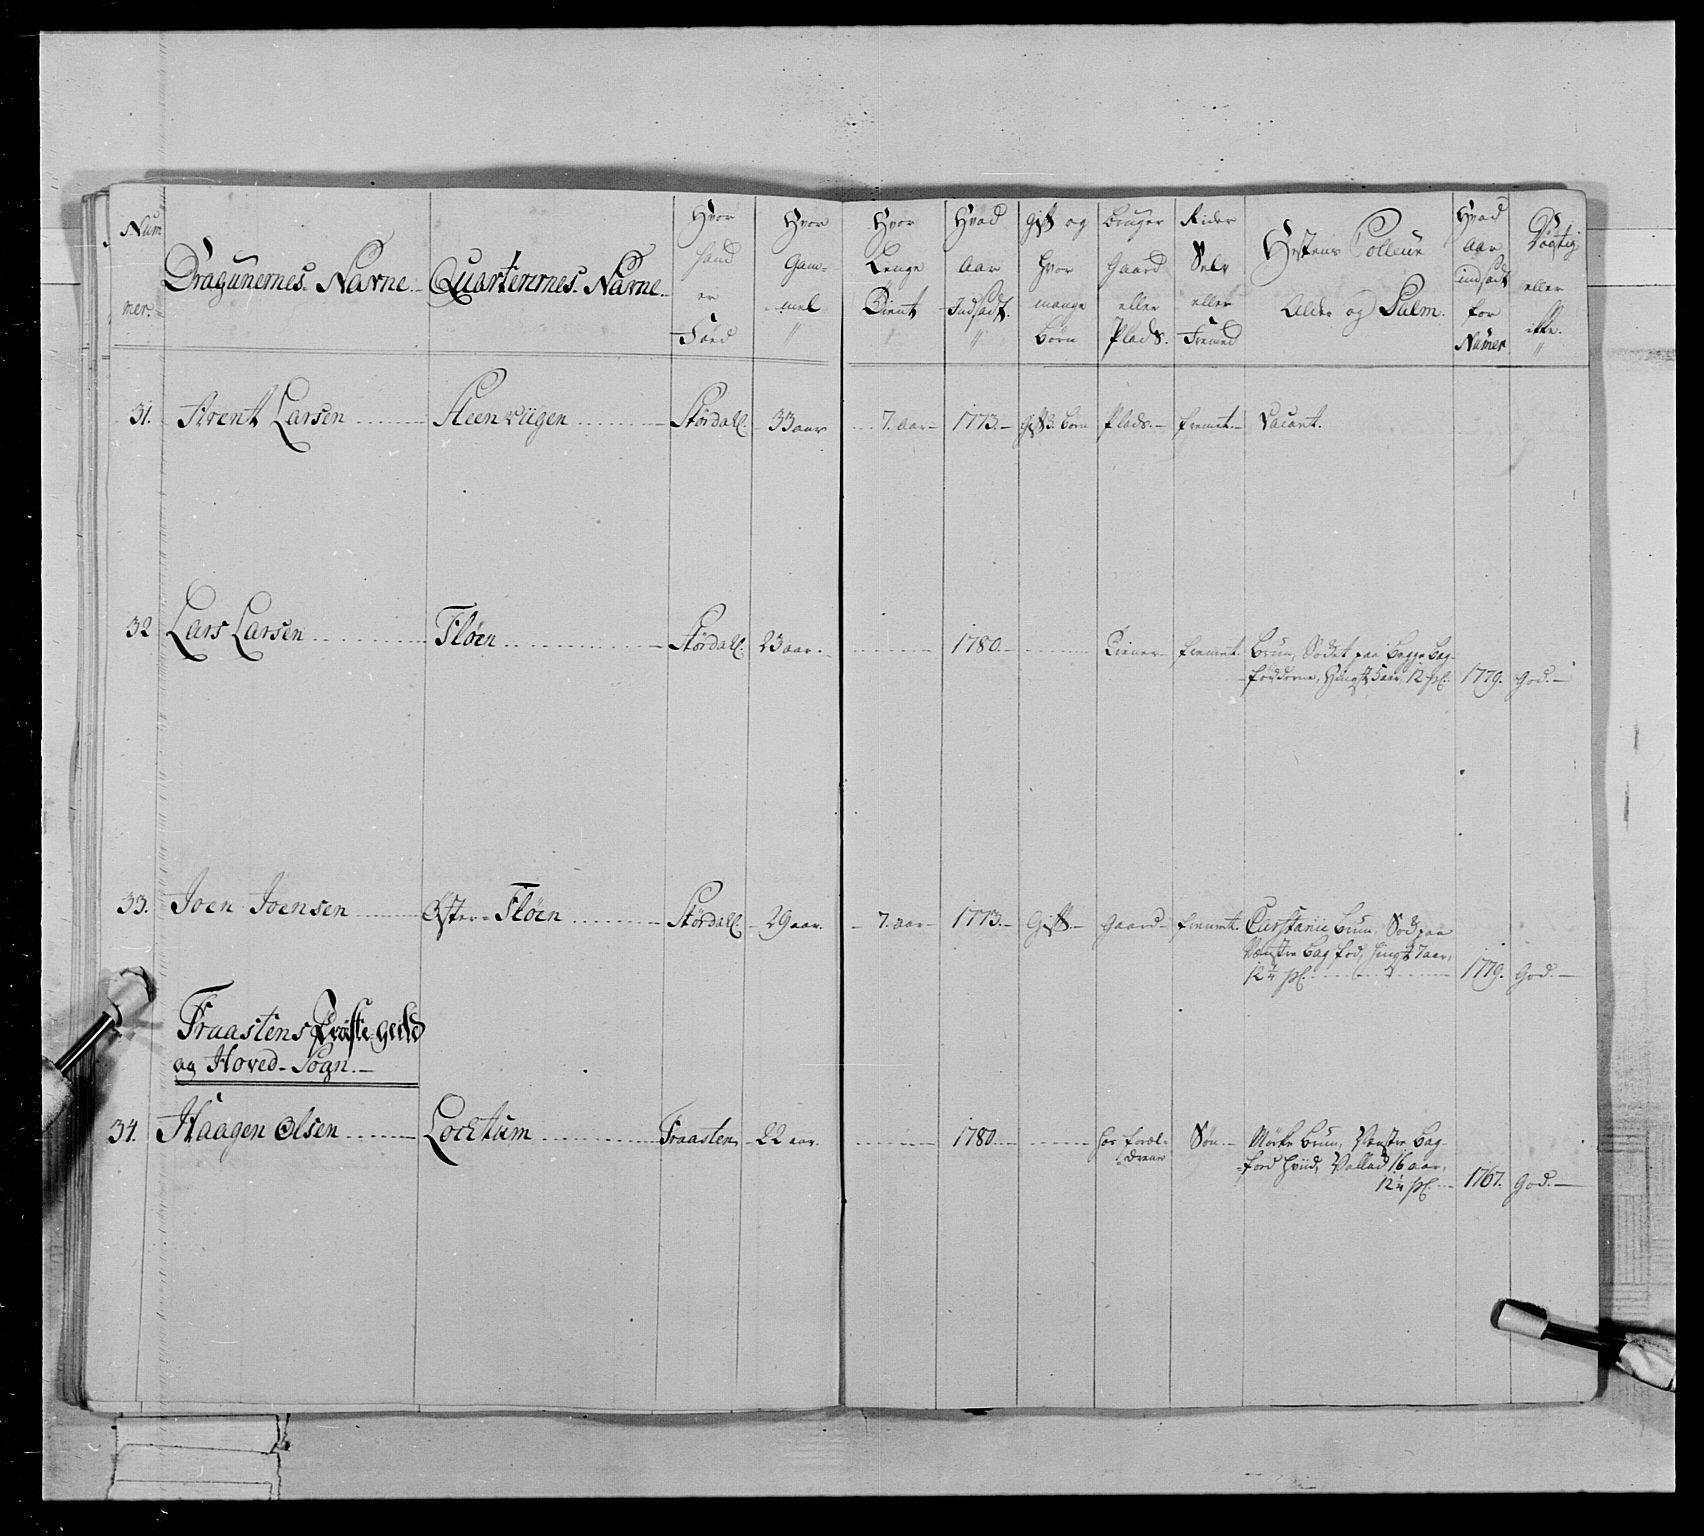 Num
mer.
Dragunernes Navne
Quarterernes Navne
Hvor
hand
er
Føed
Hvor
Gam=
mel
"
Hvor
Lenge
Tient
"
Hvad
Aar
Indsadt.
"
Gift og
hvor
mange
Børn
Bruger
Gaard
eller
Plads.
Rider
Selv
eller
Fremed
Hestens Colleur
Alder og Palm.
Hvad
aar
indsadt
for
Numer
Døgtig
eller
ikke.
"
31. Arent Larsen Steenviigen Størdall. 33 aar 7. aar 1773. Gift 3. Børn Plads. fremet. Vacant.
32 Lars Larsen Fløen Størdall. 23 aar. 1780. Tiener fremet. Brun, Sodet paa begge bag-
fødderne, Hingst 5 aar, 12 pl. 1779. God.
33. Joen Joensen Øster=Fløen Størdall. 29 aar. 7. aar 1773. Gift. Gaard fremet. Castanie Brun, Sod paa
Venstre bag fod, hingst 7 aar,
12¼ pl. 1779. God.
Fraastens Præste gield
og Hoved-Sogn.
34. Haagen Olsen Lochtum Fraasten 22 aar. 1780. hos foræl=
=drene Søn. Mørke Brun, Venstre Bag-
fod hviid, Vallad 16 aar,
12¼ pl. 1767. God.